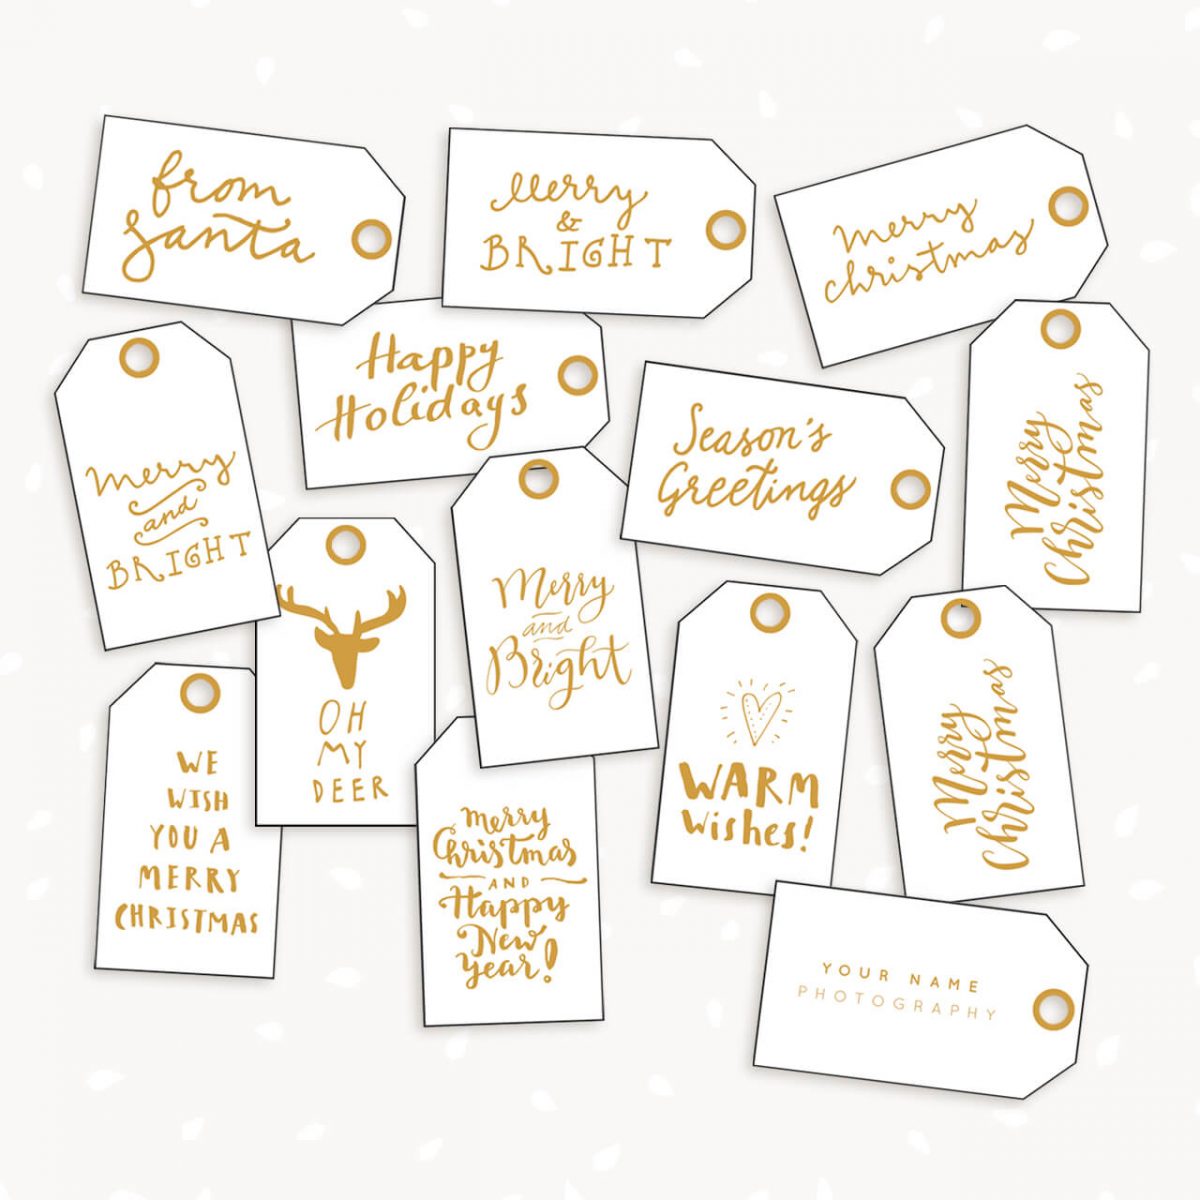 from
Santa
Merry
&
BRIGHT
merry
christmas
Happy
Holidays
merry
and
BRIGHT
Season's
Greetings
Merry
Christmas
OH
MY
DEER
Merry
and
Bright
WARM
wishes!
Merry
Christmas
WE
WISH
YOU A
MERRY
CHRISTMAS
merry
Christmas
AND
Happy
New
year!
YOUR NAME
PHOTOGRAPHY